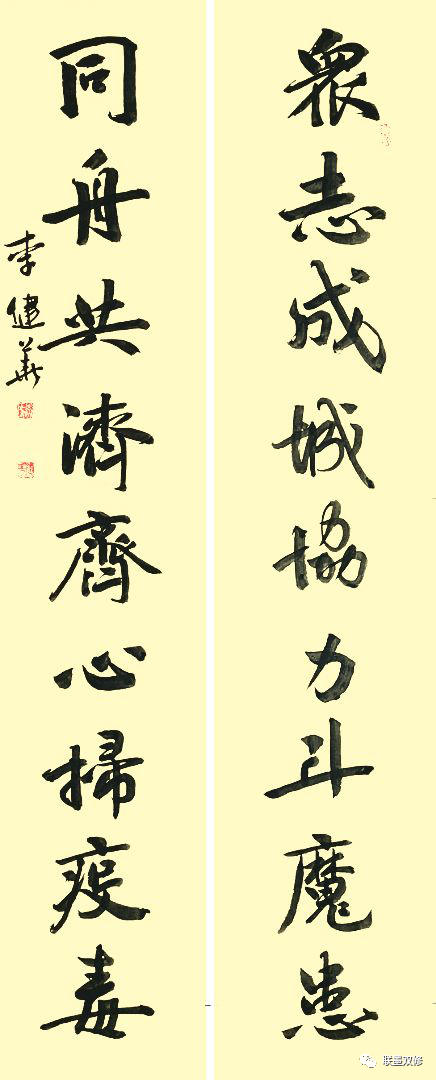 衆志成城協力斗魔患
同舟共濟齊心掃疫毒
李健華
联墨双修